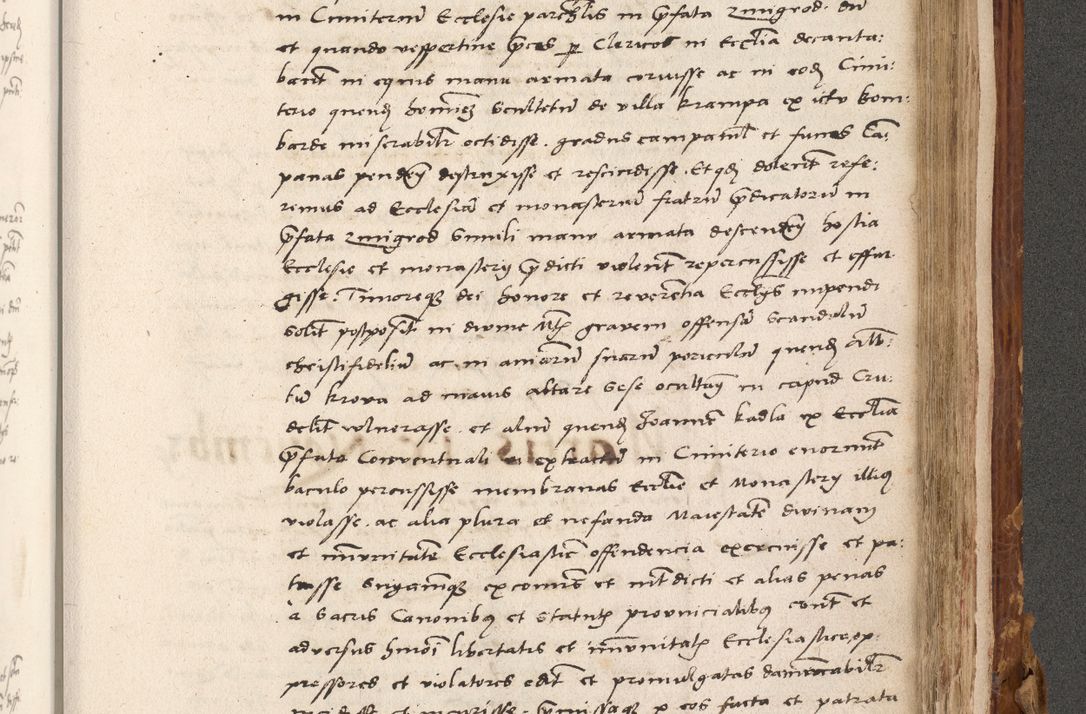 in Cimiterium Ecclesie parochialis in prefata zmigrod. dum
et quando vespertine preces per Clericos in Ecclesia decanta:
bant in equis manu armata corruisse ac in eodem Cimi:
terio quendam hominem Scultetum de villa krampa ex ictu bom:
barde miserabiliter occidisse. gradus campanilis et funes Cam
panas pendentem destruxisse et rescidisse. Et quod dolenter refe:
remus ad Ecclesiam et monasterium fratrum predicatorum in
prefata zmigrod Simili manu armata descendentem hostia
Ecclesie et monasterij predicti violenter repercussisse et effre
gisse. Timoreque dei honore et reverentia Ecclesijs impendi
solit postpositis in divine Mtis gravem offensam Scandalum
christifidelium ac in animarum suarum periculum quendam Alber
tum krova ad maius altare Sese occultantem in capud Cru:
deliter vulnerasse. et alium quendam Joannem kadla ex Ecclesia
prefata Conventuali extractum in Cimiterio enormiter
baculo percussisse membranas Ecclesie et Monasterij illius
violasse. ac alia plura et nefanda Maiestatem divinam
et immunitatem Ecclesiasticam offendencia exercuisse et pa:
trasse Singamque excommunicationis et interdicti et alias penas
à Sacris Canonibus et Statutis provincialibus contra et
adversus huiusmodi libertatis et immunitatis Ecclesiastice op:
pressores et violatores editas et promulgatas damnabiliter
incidisse et incurrisse. premissaque per eos facta et patrata